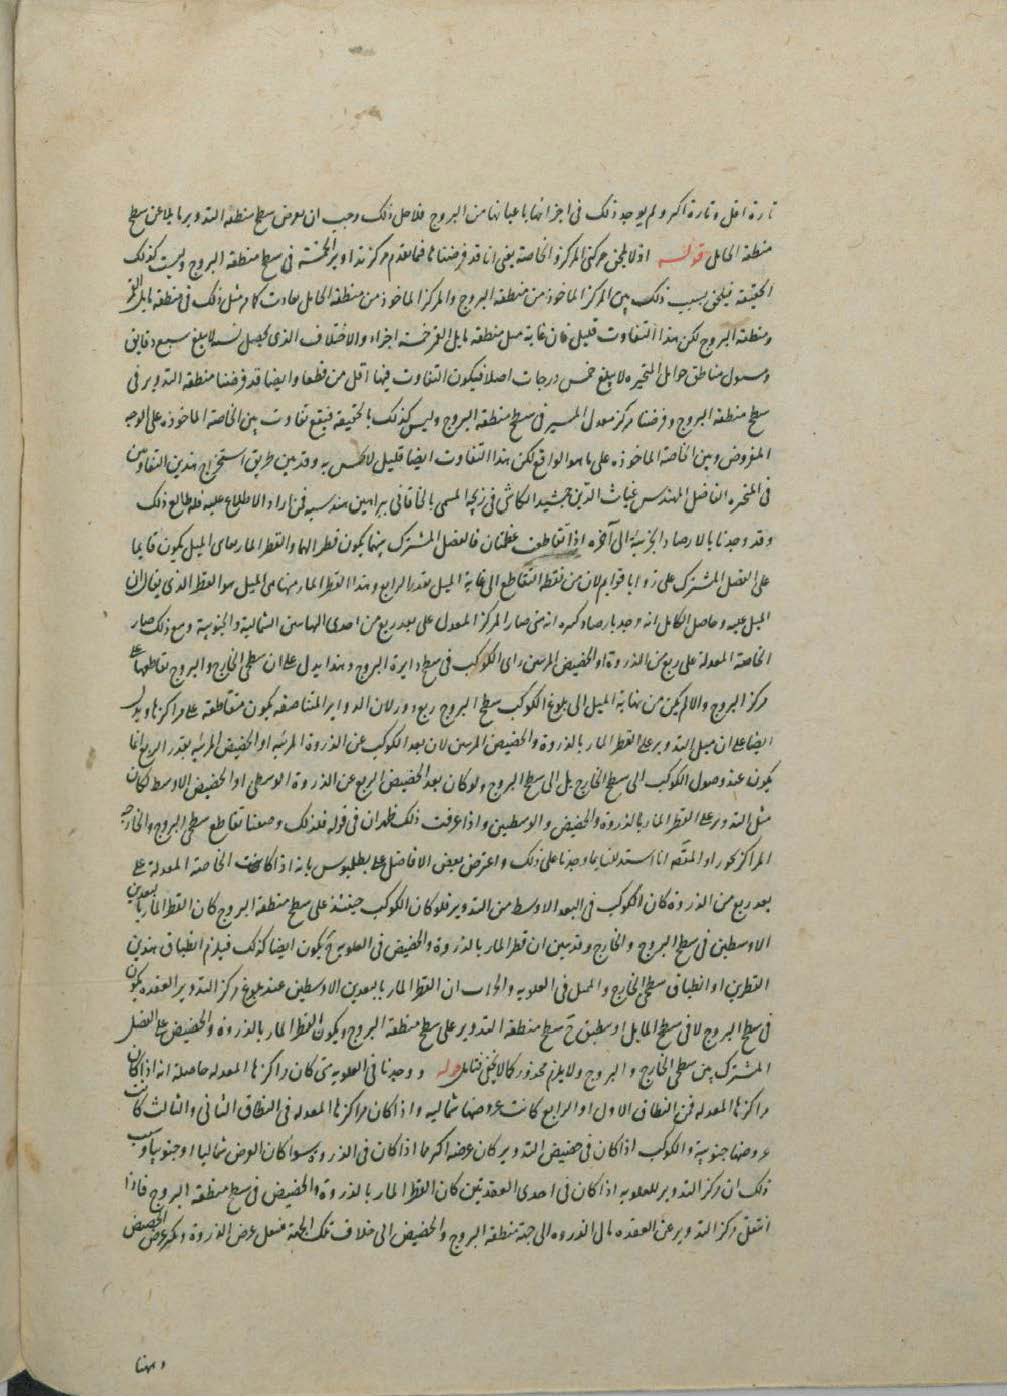 تارة اقل وتارة اكثر ولم يوجد ذلك في اجزائها باعيانها من البروج فلاجل ذلك وجب ان يعرض سطح منطقة التدوير مايلا عن سطح
منطقة الحامل قوله اذ لا يخفى حركتى المركز والخاصة يعنى انا قد فرضنا فيما تقدم مركز تداوير الخمسة في سطح منطقة البروج وليست كذلك
الحقيقة فيلحق بسبب ذلك بين المركز الماخوذ من منطقة البروج والمركز الماخوذ من منطقة الحامل تفاوت كما مر مثل ذلك في منطقة مايل القمر
ومنطقة البروج لكن هذا التفاوت قليل فان غاية ميل منطقة مايل القمر خمسة اجزاء والاختلاف الذى يحصل لا يبلغ سبع دقايق
وميول مناطق حوامل المتحيرة لا يبلغ خمس درجات اصلا فيكون التفاوت فيها اقل من قطعا وايضا قد فرضنا منطقة التدوير في
سطح منطقة البروج وفرضنا مركز معدل المسير في سطح منطقة البروج وليس كذلك بالحقيقة فيقع تفاوت بين الخاصة الماخوذة على الوجه
المفروض وبين الخاصة الماخوذه على ما هو الواقع لكن هذا التفاوت ايضا قليل لا يحس به وقد بين طريق استخراج هذين التفاوتين
في المتحيره الفاضل المهندس غياث الدين جمشيد الكاشى في زيجه المسمى بالخاقانى ببراهين هندسيه فمن اراد الاطلاع عليه فليطالع ذلك
وقد وجدنا بالارصاد الجزئية الى آخره اذا تقاطعت عظمتان فالفصل المشترك بينهما يكون قطرا لهما والقطر المار بغاية الميل يكون قايما
على الفصل المشترك على زوايا قوايم لان من نقطة التقاطع الى غاية الميل بقدر الربع وهذا القطر المار بنهايتى الميل هو القطر الذى يقال ان
الميل عليه وحاصل الكلام انه وجد بارصاد كثيره انه متى صار المركز المعدل على بعد ربع من احدى النهايتين الشمالية والجنوبية ومع ذلك صار
الخاصة المعدلة على ربع من الذروة او الحضيض المرئيين راى الكوكب في سطح دايرة البروج وهذا يدل على ان سطحى الخارج والبروج تقاطعهما على
مركز البروج والا لم يكن من نهاية الميل الى بلوغ الكوكب سطح البروج ربع دور لان الدواير المتناصفه يكون متقاطعة على مراكزها ويدل
ايضا على ان ميل التدوير على القطر المار بالذروة والحضيض المرئيين لان بعد الكوكب عن الذروة المرئيه او الحضيض المرئيه بقدر الربع انما
يكون عند وصول الكوكب الى سطح الخارج بل الى سطح البروج ولو كان بعد الحضيض الربع عن الذروة الوسطى او الحضيض الاوسط لكان
ميل التدوير على القطر المار بالذروة والحضيض والوسطين واذا عرفت ذلك ظهر ان في قوله فلذلك وضعنا تقاطع سطحى البروج والخارجة
المراكز او المتمم انا استدللنا بما وجدنا على ذلك واعترض بعض الافاضل على بطلميوس بانه اذا كانت الخاصة المعدلة على
بعد ربع من الذروة كان الكوكب في البعد الاوسط من التدوير فلو كان الكوكب حينئذ على سطح منطقة البروج كان القطر المار بالبعدين
الاوسطين في سطح البروج والخارج وقد بين ان قطر المار بالذروة والحضيض في العلوية يكون ايضا كذلك فيلزم انطباق هذين
القطرين او انطباق سطحى الخارج والممثل في العلويه والجواب ان القطر المار بالبعدين الاوسطين عند بلوغ مركز التدوير العقده يكون
في سطح البروج لا في سطح المايل سطح منطقة التدوير على سطح منطقة البروج ويكون القطر المار بالذروة والحضيض على الفصل
المشترك بين سطحى الخارج والبروج ولا يلزم محذور كما لا يخفى فتامل قوله ووجدنا في العلويه متى كان مراكزها المعدله حاصله انه اذا كان
مراكزها المعدله فمن النطاق الاول او الرابع كانت عروضها شماليه واذا كان مراكزها المعدله في النطاق الثانى والثالث كانت
عروضها جنوبية والكوكب اذا كان في حضيض التدوير كان عرضه اكثر مما اذا كان في الذروة سوا كان العرض شماليا او جنوبيا وسبب
ذلك ان مركز التدوير للعلويه اذا كان في احدى العقدتين كان القطر المار بالذروة والحضيض في سطح منطقة البروج فاذا
انتقل مركز التدوير عن العقده مال الذروه الى جهة منطقة البروج والحضيض الى خلاف تلك الجهة فيقل عرض الذروة ويكثر عرض الحضيض
وهنا